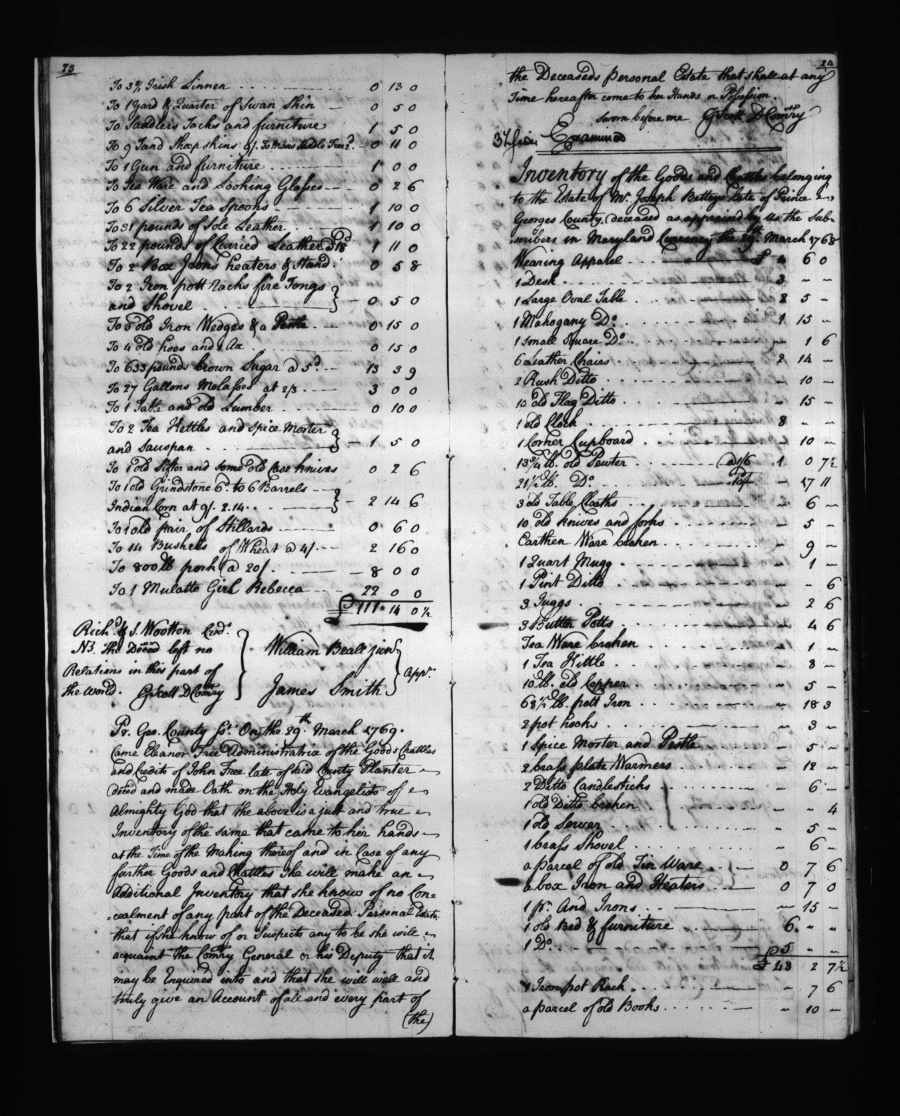 23
To 3¾ Irish Linnen 0 13 0
To 1 Yard & Quarter of Swan Skin 0 5 0
To Saddlers Tacks and furniture 1 5 0
To 9 Tand Sheepskins 0 11 0
To 1 Gun and furniture 1 0 0
To Tea Ware and Looking Glasses 0 2 6
To 6 Silver Tea Spoons 1 10 0
To 31 pounds of Sole Leather 1 10 0
To 22 pounds of Curried Leather 1 11 0
To 2 Box Irons heaters & Stand 0 5 8
To 2 Iron pott racks fire Tongs
and Shovel 0 5 0
To 8 old Iron Wedges & a Pestle 0 15 0
To 4 old hoes and 1 Ax 0 15 0
To 633 pounds brown Sugar @ 5d 13 3 9
To 27 Gallons Molasses at 2/3 3 0 0
To 1 Table and old Lumber 0 10 0
To 2 Tea Kettles and Spice Morter
and Sauspan 1 5 0
To 1 old Sifter and some old Case knives 0 2 6
To 1 old Grindstone 6d to 6 Barrels
Indian Corn at 9/. 2.14 2 14 6
To 1 old pair of Stillards 0 6 0
To 14 Bushells of Wheat @ 4/ 2 16 0
To 800 lb pork @ 20/ 8 0 0
To 1 Mulatto Girl Rebecca 22 0 0
£ 111 14 0½
Richd. & S. Wootton Crds.
NB. The Deced left no
Relations in this part of
the World. GScott DComry
William Beall junr
James Smith
Apprs.
Pr. Geo. County Sc. On the 29th March 1769.
Came Eleanor Free Administratrix of the Goods Chattles
and Credits of John Free late of said County Planter
deced and made Oath on the Holy Evangelists of
Almighty God that the above is a just and true
Inventory of the same that came to her hands
at the Time of the Making thereof and in Case of any
further Goods and Chattles She will make an
additional Inventory that she knows of no Con=
=cealment of any part of the Deceaseds Personal Estate
that if she know of or Suspects any to be she will
acquaint the Comry General or his Deputy that it
may be Enquired into and that she will well and
truly give an Account of all and every part of
(the)
24
the Deceaseds personal Estate that shall at any
Time hereafter come to her Hands or Possession
Sworn before me GScott DComry
Examined
Inventory of the Goods and Chattles belonging
to the Estate of Mr. Joseph Bettey late of Prince
Georges County, deceased as appraised by us the Sub-
scribers in Maryland Currency the March 1768
Wearing Apparel £ 6 0
1 Desk 3 - -
1 Large Oval Table 2 5 -
1 Mahogany Do. 1 15 -
1 Small Square Do. 1 6
6 Leather Chairs 2 14 -
2 Rush Ditto - 10 -
10 old Flag Ditto - 15 -
1 old Clock 8 - -
1 Corner Cupboard - 10 -
13¾ lb. old Pewter @ 1/6 1 0 7½
21½ lb. Do. 17 11
3 old Table Cloaths - 6 -
10 old knives and forks - 5 -
Earthen Ware broken - 9 -
1 Quart Mugg - 1 -
1 Pint Ditto - - 6
3 Juggs - 2 6
3 Butter Potts - 4 6
Tea Ware broken - 1 -
1 Tea Kittle - 8 -
10 lb. old Copper - 5 -
68½ lb. pott Iron - 18 3
2 pot hooks - 3 -
1 Spice Morter and Pestle - 5 -
2 brass plate Warmers - 12 -
2 Ditto Candlesticks - 6 -
1 old Ditto broken - - 4
1 old Server - 5 -
1 brass Shovel - 6 -
a parcel of old Tin Ware 0 7 6
a box Iron and Heaters 0 7 0
1 pr. And Irons - 15 -
1 old Bed & furniture 6 - -
1 Do. 5 - -
£ 43 2 7½
1 Iron pot Rack - 7 6
a parcel of old Books - 10 -